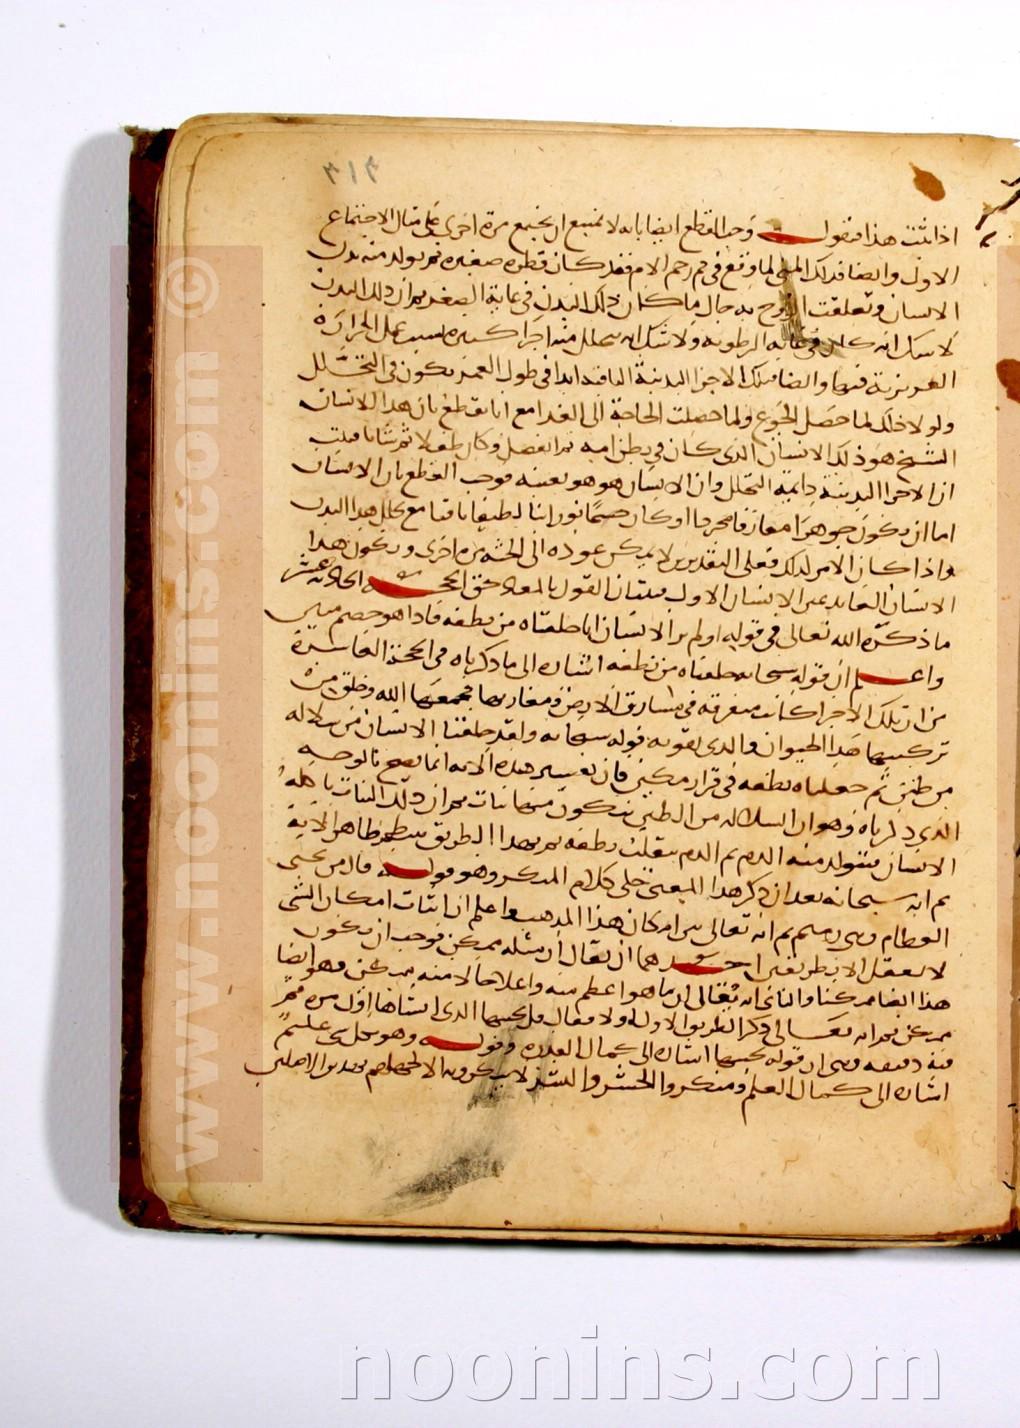 اذا ثبت هذا فنقول وجب القطع ايضا بانه لا يمتنع ان يجتمع مرة اخرى على مثال الاجتماع
الاول وايضا فذلك المنى لما وقع فى فم رحم الام فقد كان قطرة صغيرة ثم تولد منه بدن
الانسان وتعلقت الروح به حال ما كان ذلك البدن فى غاية الصغر ثم ان ذلك البدن
لا شك انه كان فى غاية الرطوبة ولا شك انه يتحلل منه اجزا كثيرة بسبب عمل الحرارة
الغريزية فيها وايضا فتلك الاجزا البدنية الباقية ابدا فى طول العمر تكون فى التحلل
ولولا ذلك لما حصل الجوع ولما حصلت الحاجة الى الغدا مع انا نقطع بان هذا الانسان
الشيخ هو ذلك الانسان الذى كان فى بطن امه ثم انفصل وكان طفلا ثم شابا فثبت
ان الاجزا البدنية دايمة التحلل وان الانسان هو هو بعينه فوجب القطع بان الانسان
اما ان يكون جوهرا مفارقا مجردا او كان جسما نورانيا لطيفا باقيا مع تحلل هذا البدن
واذا كان الامر كذلك فعلى التقديرين لا يمكن عوده الى الجثة مرة اخرى ويكون هذا
الانسان العايد عين الانسان الاول فثبت ان القول بالمعاد حق الحجة الحادية عشر
ما ذكره الله تعالى فى قوله اولم ير الانسان انا خلقناه من نطفة فاذا هو خصيم مبين
واعلم ان قوله سبحانه خلقناه من نطفة اشارة الى ما ذكرناه فى الحجة العاشرة
من ان تلك الاجزا كانت متفرقة فى مشارق الارض ومغاربها فجمعها الله وخلق من
تركيبها هذا الحيوان والذى يقويه قوله سبحانه ولقد خلقنا الانسان من سلالة
من طين ثم جعلناه نطفة فى قرار مكين فان تفسير هذه الاية انما يصح بالوجه
الذى ذكرناه وهو ان السلالة من الطين يتكون منها نبات ثم ان ذلك النبات ياكله
الانسان فيتولد منه الدم ثم الدم ينقلب نطفة فبهذا الطريق ينتظم ظاهر الاية
ثم انه سبحانه بعد ان ذكر هذا المعنى حكى كلام المنكر وهو قوله قال من يحيى
العظام وهى رميم ثم انه تعالى بين امكان هذا المذهب واعلم ان اثبات امكان الشى
لا يعقل الا بطريقين احدهما ان يقال ان مثله ممكن فوجب ان يكون
هذا ايضا ممكنا والثانى ان يقال ان ما هو اعظم منه واعلا حالا منه ممكن فهو ايضا
ممكن ثم انه تعالى ذكر الطريق الاول اولا فقال قل يحييها الذى انشاها اول مرة ثم
فيه دقيقة وهى ان قوله يحييها اشارة الى كمال القدرة وقوله وهو بكل خلق عليم
اشارة الى كمال العلم ومنكروا الحشر والنشر لا ينكرونه الا لجهلهم بهذين الاصلين